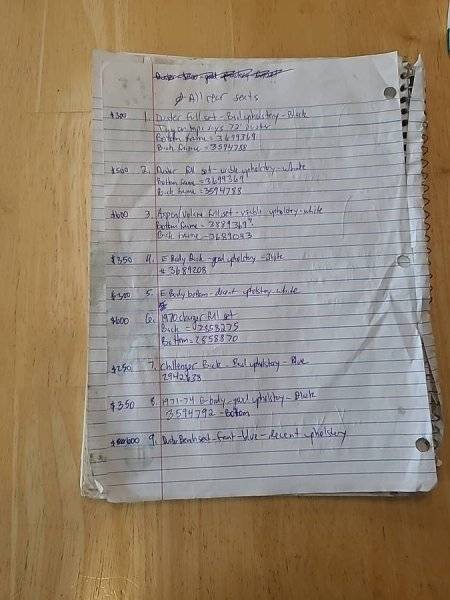 All rear seats
$300 1. Duster full set - Bad upholstery - Black
72 Duster
Bottom frame = 3699369
Back frame = 3594788
$500 2. Duster full set - visible upholstery - white
Bottom frame = 3699369
Back frame = 3594788
$600 3. Aspen/Volare full set - visible upholstery - white
Bottom frame - 3889369
Back frame - 3689043
$350 4. E Body Back - good upholstery - white
# 3689208
$300 5. E Body bottom - decent upholstery white
$600 6. 1970 charger full set
Back = 2858275
Bottom = 2858870
$250 7. Challenger Back - Bad upholstery - Blue
2942838
$350 8. 1971-74 E-body - good upholstery - Black
3594792 - Bottom
$600 9. Duster Bench seat - front - blue - decent upholstery